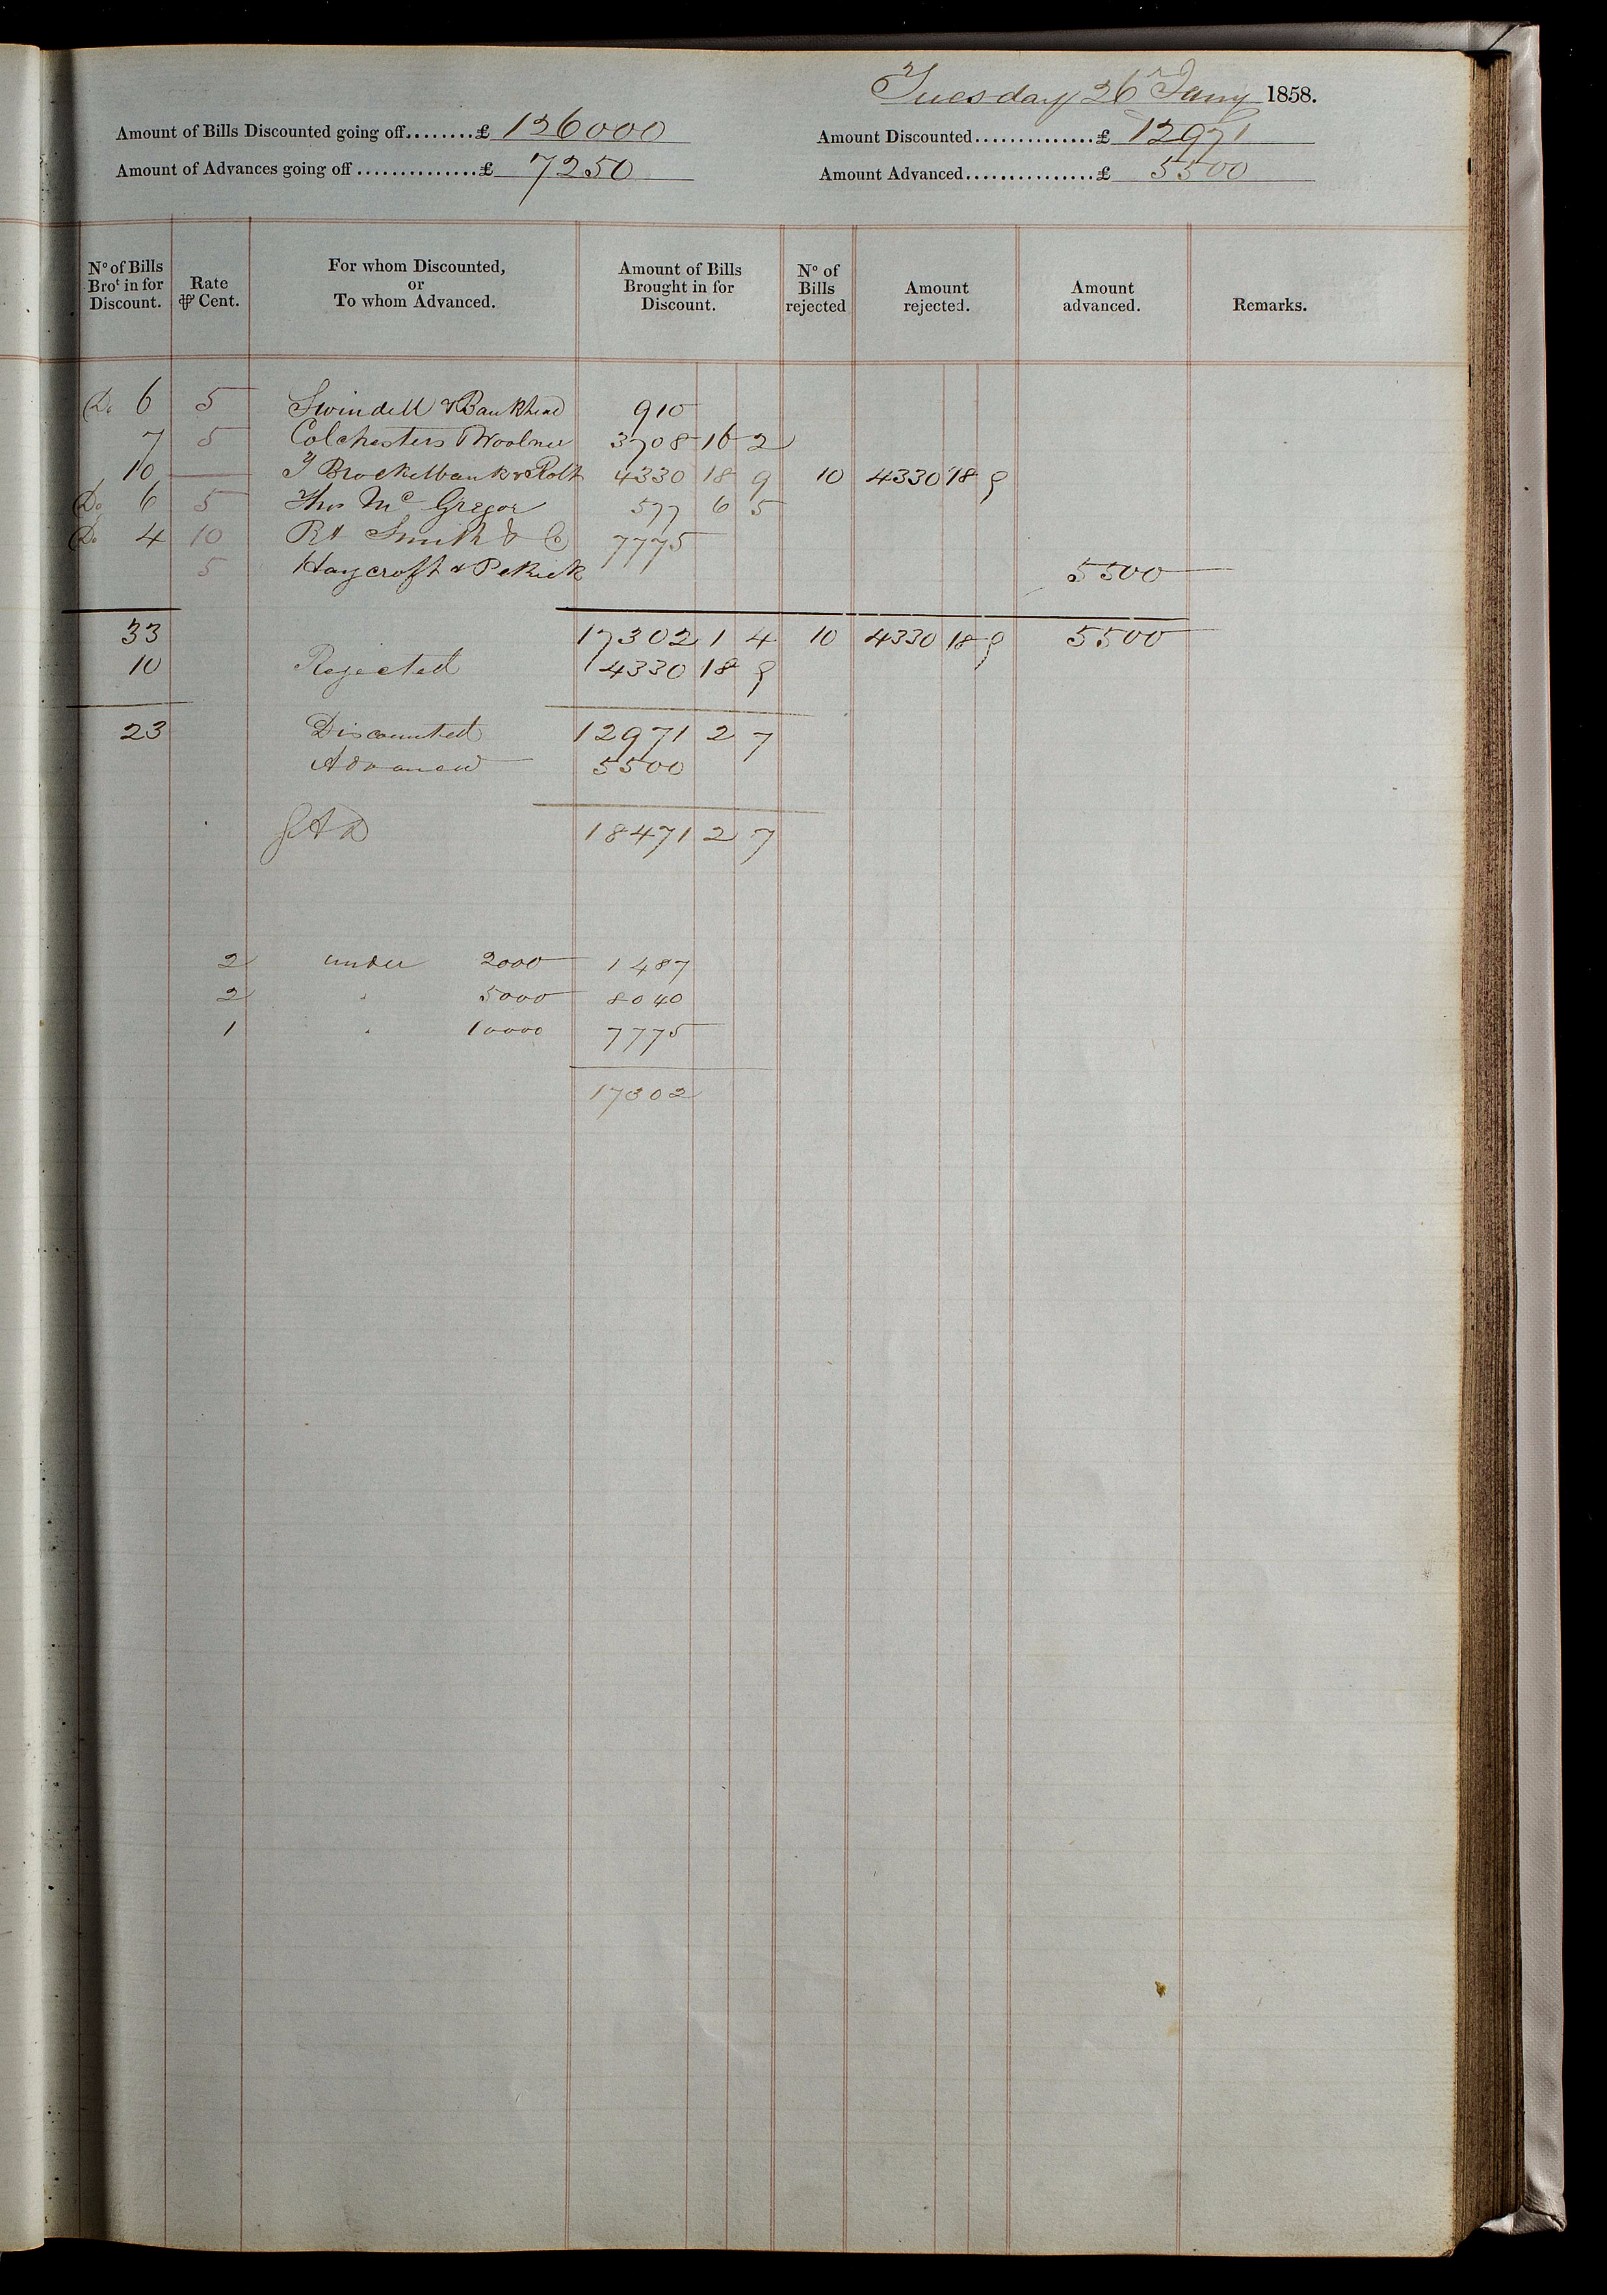 Tuesday 26 Jany 1858.
Amount of Bills Discounted going off........£ 126000 Amount Discounted..............£ 12971
Amount of Advances going off..............£ 7250 Amount Advanced...............£ 5500
No of Bills Brot in for Discount. Rate ⅌ Cent. For whom Discounted, or To whom Advanced. Amount of Bills Brought in for Discount. No of Bills rejected Amount rejected. Amount advanced. Remarks.
Do 6 5 Swindell & Bankhead 910
7 5 Colchesters & Woolner 3708 16 2
10 — T Brockelbank & Rolt 4330 18 9 10 4330 18 9
Do 6 5 Thos McGregor 577 6 5
Do 4 10 Rt Smith & Co 7775
5 Haycroft & Pethick 5500
33 17302 1 4 10 4330 18 9 5500
10 Rejected 4330 18 9
23 Discounted 12971 2 7
Advanced 5500
18471 2 7
2 under 2000 1487
2 " 5000 8040
1 " 10000 7775
17302